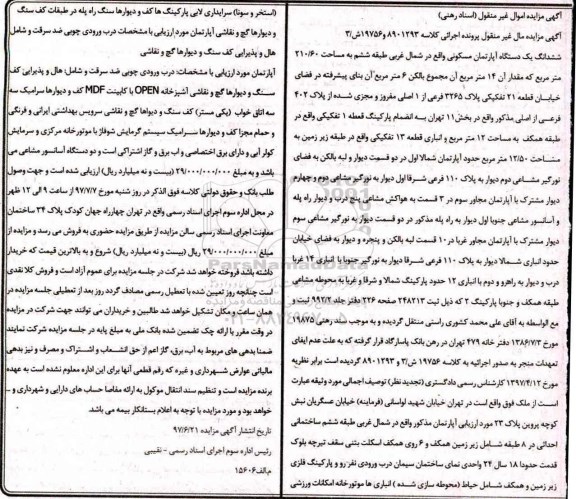 آگهی مزایده اموال غیر منقول (اسناد رهنی)
آگهی مزایده مال غیر منقول پرونده اجرائی کلاسه ۸۹۰۱۲۹۳ و۱۹۷۵۶ش/۳
ششدانگ یک دستگاه آپارتمان مسکونی واقع در شمال غربی طبقه ششم به مساحت ۲۱۰/۶۰
متر مربع که مقدار آن ۱۴ متر مربع آن مجموع بالکن ۶ متر مربع آن بنای پیشرفته در فضای
خیابان قطعه ۲۱ تفکیکی پلاک ۳۲۶۵ فرعی از ۱ اصلی مفروز و مجزی شده از پلاک ۴۰۲
فرعی از اصلی مذکور واقع در بخش۱۱ تهران به انضمام پارکینگ قطعه ۱ تفکیکی واقع در
طبقه همکف به مساحت ۱۲ متر مربع و انباری قطعه ۱۳ تفکیکی واقع در طبقه زیر زمین به
مساحت ۱۲/۵۰ متر مربع حدود آپارتمان شمالا اول در دو قسمت دیوار و لبه بالکن به فضای
نورگیر مشاعی دوم دیوار به پلاک ۱۱۰ فرعی شرقا اول دیوار به نورگیر مشاعی دوم و چهارم
دیوار مشترک با آپارتمان مجاور سوم در ۳ قسمت به هواکش مشاعی پنج درب و دیوار راه پله
و آسانسور مشاعی جنوبا اول دیوار به راه پله مذکور در دو قسمت دیوار به نورگیر مشاعی سوم
دیوار مشترک با آپارتمان مجاور غربا در ۱۰ قسمت لبه بالکن و پنجره و دیوار به فضای خیابان
حدود انباری شمالا دیوار به پلاک ۱۱۰ فرعی شرقا دیوار به نورگیر جنوبا با انباری ۱۴ غربا
درب و دیوار به راهرو و دوم با انباری ۱۲ حدود پارکینگ شمالا و شرقا و غربا به محوطه مشاعی
طبقه همکف و جنوبا پارکینگ ۲ که ذیل ثبت ۲۴۸۲۱۳ صفحه ۲۲۶ دفتر جلد ۹۹۲/۲ ثبت و
مع الواسطه به آقای علی محمد کشوری راستی منتقل گردیده و به موجب سند رهنی ۱۹۸۷۵
مورخ ۱۳۸۶/۷/۳ دفتر خانه ۴۷۹ تهران در رهن بانک پاسارگاد قرار گرفته که به علت عدم ایفای
تعهدات منجر به صدور اجرائیه به کلاسه ۱۹۷۵۶ ش/۳ و ۸۹۰۱۲۹۳ گردیده است برابر نظریه
مورخ ۱۳۹۷/۴/۱۲ کارشناس رسمی دادگستری (تجدید نظر) توصیف اجمالی مورد وثیقه عبارت
است از ملک فوق واقع است در تهران خیابان شهید لواسانی (فرمانیه) خیابان عسگریان نبش
کوچه پروین پلاک ۲۳ مورد ارزیابی آپارتمان مذکور واقع در شمال غربی طبقه ششم ساختمانی
احداثی در ۸ طبقه شامل زیر زمین همکف و ۶ روی همکف اسکلت بتنی سقف تیرچه بلوک
قدمت حدودا ۱۸ سال ۲۴ واحدی نمای ساختمان سیمان درب ورودی نفررو و پارکینگ فلزی
زیر زمین و همکف شامل حیاط (محوطه سازی شده ) انباری ها موتورخانه امکانات ورزشی
(استخر و سونا) سرایداری لابی پارکینگ ها کف و دیوارها سنگ راه پله در طبقات کف سنگ
و دیوارها گچ و نقاشی آپارتمان مورد ارزیابی با مشخصات درب ورودی چوبی ضد سرقت و شامل
هال و پذیرایی کف سنگ و دیوارها گچ و نقاشی
آپارتمان مورد ارزیابی با مشخصات: درب ورودی چوبی ضد سرقت و شامل: هال و پذیرایی کف
سنگ و دیوارها گچ و نقاشی آشپزخانه OPEN با کابینت MDF کف و دیوارها سرامیک سه
سه اتاق خواب (یکی مستر) کف سنگ و دیواها گچ و نقاشی سرویس بهداشتی ایرانی و فرنگی
و حمام مجزا کف و دیوارها سرامیک سیستم گرمایش شوفاژ با موتورخانه مرکزی و سرمایش
کولر آبی و دارای برق اختصاصی و اب برق و گاز اشتراکی است و دو دستگاه آسانسور مشاعی می
باشد و به مبلغ ۲۹/۰۰۰/۰۰۰/۰۰۰ (بیست و نه میلیارد ریال) ارزیابی شده است و جهت وصول
طلب بانک و حقوق دولتی کلاسه فوق الذکر در روز شنبه مورخ ۹۷/۷/۷ از ساعت ۹ الی ۱۲ ظهر
در محل اداره سوم اجرای اسناد رسمی واقع در تهران چهارراه جهان کودک پلاک ۳۴ ساختمان
معاونت اجرای اسناد رسمی سالن مزایده از طریق مزایده حضوری به فروش می رسد و مزایده از
مبلغ ۲۹/۰۰۰/۰۰۰/۰۰۰ ریال (بیست و نه میلیارد ریال) شروع و به بالاترین قیمت که خریدار
داشته باشد فروخته خواهد شد شرکت در جلسه مزایده برای عموم آزاد است و فروش کلا نقدی
است چنانچه روز تعیین شده با تعطیل رسمی مصادف گردد روز بعد از تعطیلی جلسه مزایده در
همان ساعت و مکان تشکیل خواهد شد طالبین و خریداران می توانند جهت شرکت در مزایده
در وقت مقرر با ارائه چک تضمین شده بانک ملی به مبلغ پایه در جلسه مزایده شرکت نمایند
ضمنا بدهی های مربوط به آب، برق، گاز اعم از حق انشعاب و اشتراک و مصرف و نیز بدهی
مالیاتی عوارض شهرداری و غیره که رقم قطعی آنها برای این اداره معلوم نشده است به عهده
برنده مزایده است و تنظیم سند انتقال موکول به ارائه مفاصا حساب های دارایی و شهرداری و ...
خواهد بود و مورد مزایده با توجه به اعلام بستانکار بیمه می باشد.
تاریخ انتشار آگهی مزایده ۹۷/۶/۲۱
رئیس اداره سوم اجرای اسناد رسمی - نقیبی
م الف۱۵۶۰۶